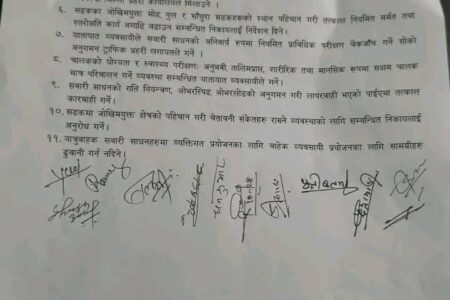 जिल्ला प्रहरी कार्यालयले मिलाउने ।
६. सडकका जोखिमयुक्त मोड, पुल र साँघुरा सडकहरूको स्थान पहिचान गरी तत्काल नियमित मर्मत तथा
स्तरोन्नति कार्य अगाडि बढाउन सम्बन्धित निकायलाई निर्देशन दिने।
७. यातायात व्यवसायीले सवारी साधनको अनिवार्य रूपमा नियमित प्राविधिक परीक्षण चेकजाँच गर्ने सोको
अनुगमन ट्राफिक प्रहरी लगायतले गर्ने ।
८. चालकको योग्यता र स्वास्थ्य परीक्षणः अनुभवी तालिमप्राप्त, शारीरिक तथा मानसिक रूपमा सक्षम चालक
मात्र परिचालन गर्ने व्यवस्था सम्बन्धित यातायात व्यवसायीले गर्ने।
९. सवारी साधनको गति नियन्त्रण, ओभरस्पिड, ओभरलोडको अनुगमन गरी लापरवाही भएको पाईएमा तत्काल
कारवाही गर्ने।
१०. सडकमा जोखिमयुक्त क्षेत्रको पहिचान गरी चेतावनी संकेतहरू राख्ने व्यवस्थाको लागि सम्बन्धित निकायलाई
अनुरोध गर्ने।
११. यात्रुवाहक सवारी साधनहरूमा व्यक्तिगत प्रयोजनका लागि बाहेक व्यवसायी प्रयोजनका लागि सामग्रीहरू
ढुवानी गर्न नदिने।